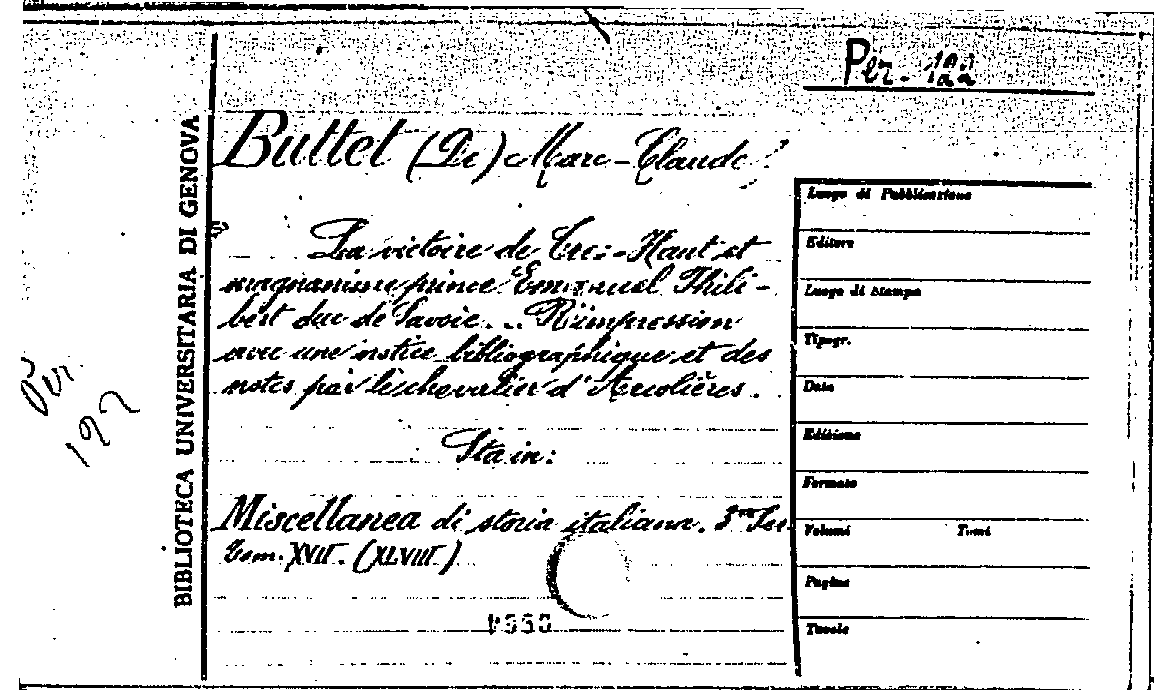 Per.
BIBLIOTECA UNIVERSITARIA DI GENOVA
Buttet (De) Marc-Claude
La victoire de Tres-Haut et
magnanime prince Emmanuel Phili-
bert duc de Savoie... Réimpression
avec une notice bibliographique et des
notes par le chevalier d'Arcolières.
Sta in:
Miscellanea di storia italiana. 3ᵃ Ser.
Tom. XVII. (XLVIII)
Per.
192
Luogo di Pubblicazione
Editore
Luogo di Stampa
Tipogr.
Data
Edizione
Formato
Volumi Tomi
Pagine
Tavole